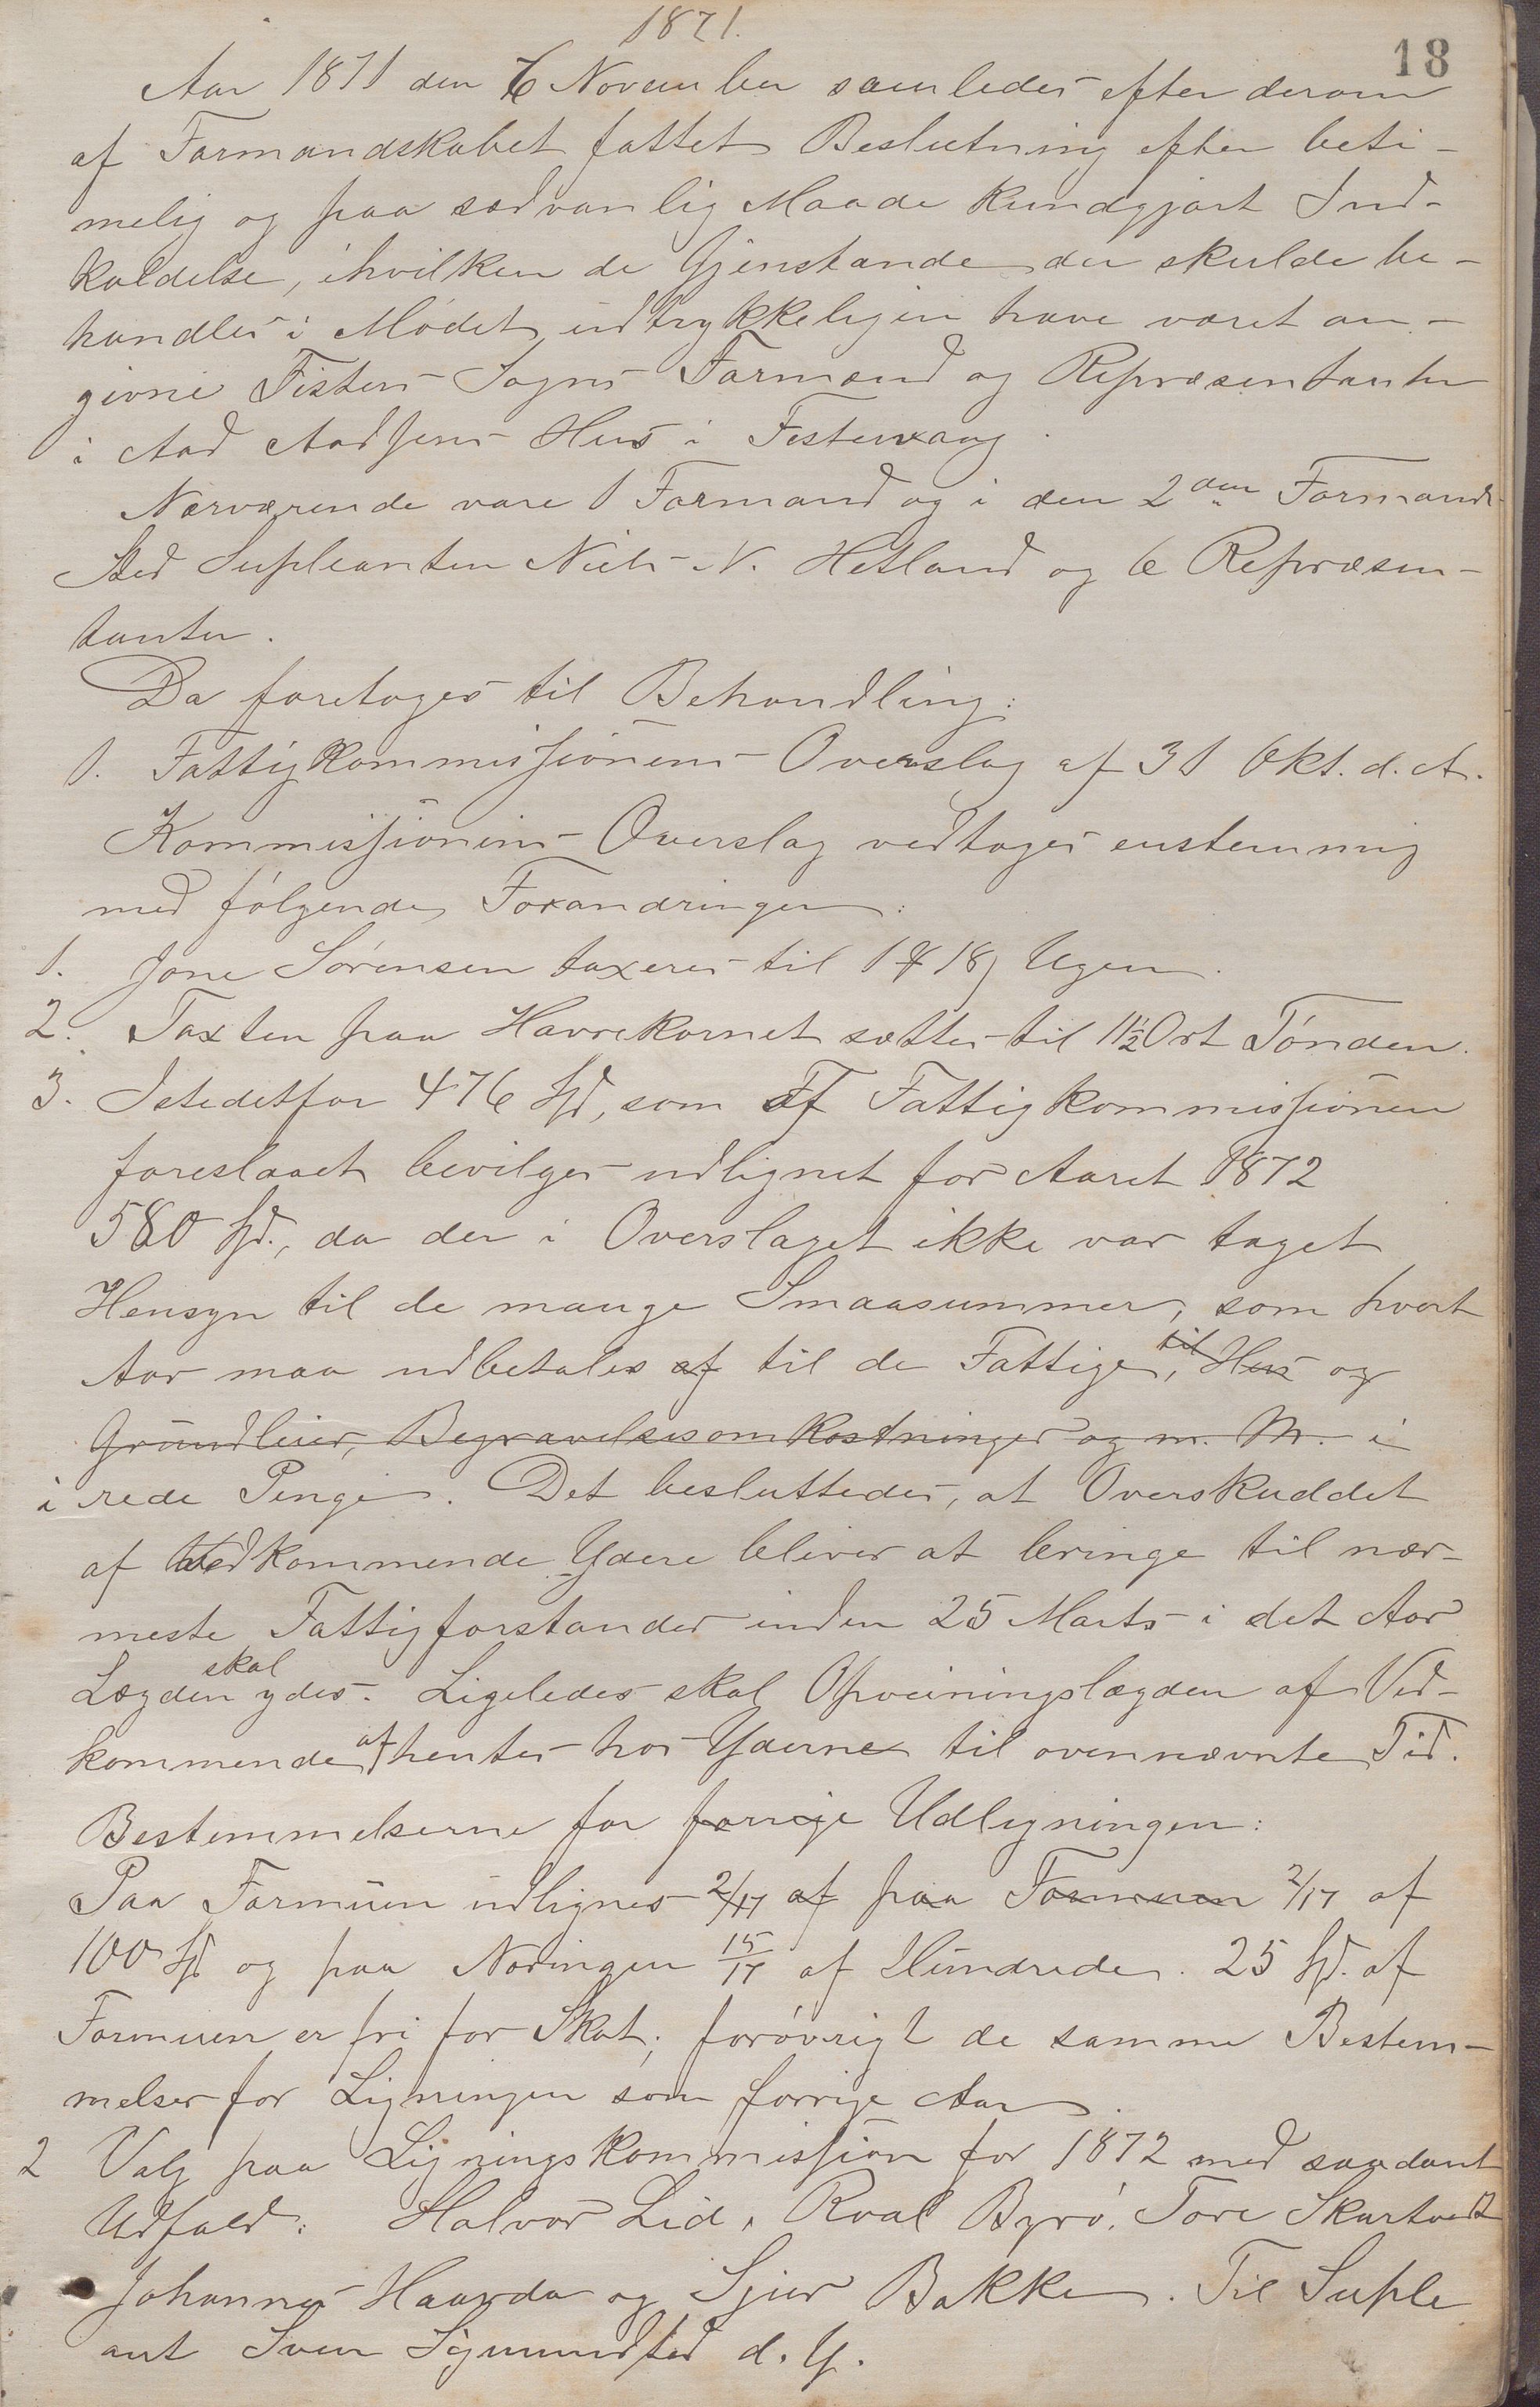 1871.
18
Aar 1871 den 6 November samledes efter derom
af Formandskabet fattet Beslutning efter beti-
melig og paa sædvanlig Maade kundgjort Ind-
kaldelse, ihvilken de Gjenstande der skulde be-
handles i Mødet udtrykkeligen have været an-
givne Fisters Sogns Formænd og Repræsentanter
i Aad Aadsens Hus i Fistervaag.
Nærværende vare 1 Formand og i den 2den Formands
Sted Supleanten Niels N. Hetland og 6 Repræsen-
tanter.
Da foretoges til Behandling:
1. Fattigkommissionens Overslag af 31 Okt. d. A.
Kommissionens Overslag vedtoges enstemmig
med følgende Forandringer:
1. Jone Sørensen taxeres til 1 ₰ 18 Ugen.
2. Taxten paa Havrekornet sættes til 11½ Ort Tønden.
3. Istedetfor 476 Spd, som af Fattigkommissionen
foreslaaet bevilges udlignet for Aaret 1872
580 Spd., da der i Overslaget ikke var taget
Hensyn til de mange Smaasummer, som hvert
Aar maa udbetales af til de Fattige, til Hus og
Grundleier, Begravelsesomkostninger og m. M. i
i rede Penge. Det besluttedes, at Overskuddet
af Vedkommende Ydere bliver at bringe til nær-
meste Fattigforstander inden 25 Marts i det Aar
Lægden skal ydes. Ligeledes skal Opveiningslægden af Ved-
kommende afhentes hos Yderne til ovennævnte Tid.
Bestemmelserne for forrige Udligningen:
Paa Formuen udlignes 2/17 af paa Formuen 2/17 af
100 Spd og paa Næringen 15/17 af Hundrede. 25 Spd. af
Formuen er fri for Skat; forøvrigt de samme Bestem-
melser for Ligningen som forrige Aar.
2 Valg paa Ligningskommission for 1872 med saadant
Udfald: Halvor Lid, Roal Byrø, Tore Skartvedt
Johannes Haarda og Sjur Bakke. Til Suple
ant Sven Sigmundstad d. Y.